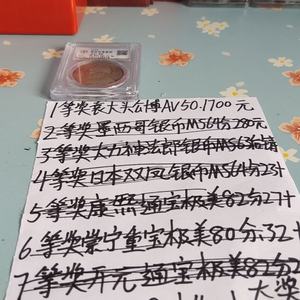 1等奖袁大头合博AV50.1700元
2等奖墨西哥银币MS64分280元
3等奖大方神法郎银币MS63
4等奖日本双凤银币MS64分23+
5等奖康熙通宝极美82分27+
6等奖崇宁重宝极美80分32+
7等奖开元通宝极美82分
大奖